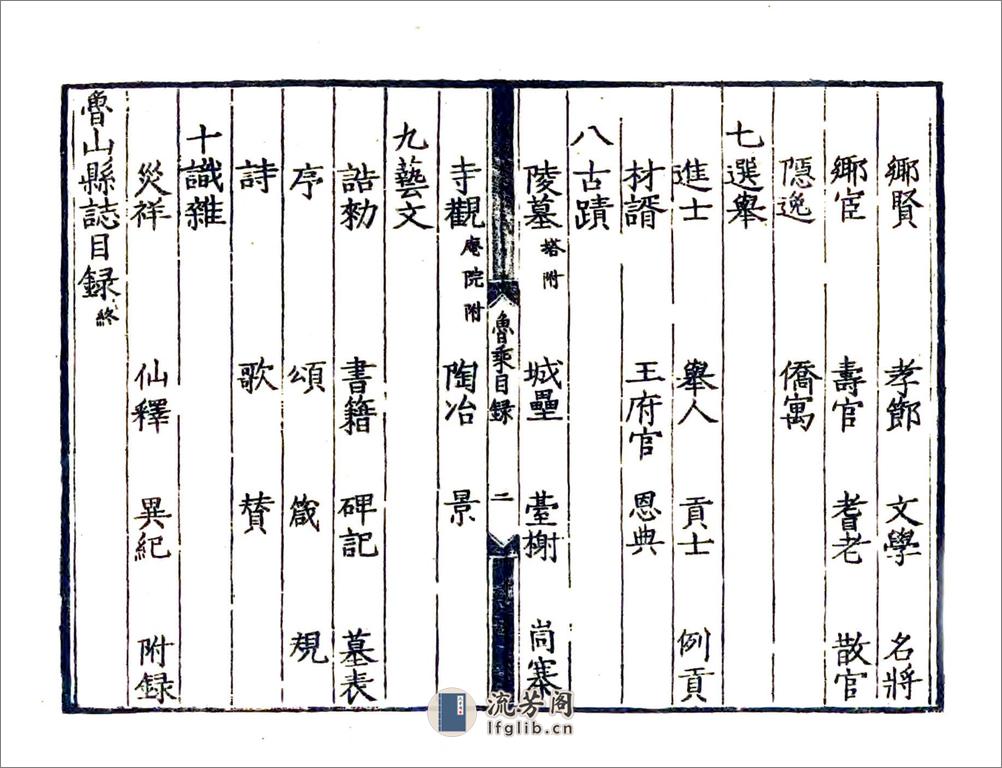 鄉賢 孝節 文學 名將
鄉宦 壽官 耆老 散官
隱逸 僑寓
七選舉
進士 舉人 貢士 例貢
材諝 王府官 恩典
八古蹟
陵墓塔附 城壘 臺榭 岗寨
魯乘目録 二
寺觀庵院附 陶冶 景
九藝文
誥勑 書籍 碑記 墓表
序 頌 箴 規
詩 歌 賛
十識雜
災祥 仙釋 異紀 附録
魯山縣誌目録終
流芳阁
lfglib.cn